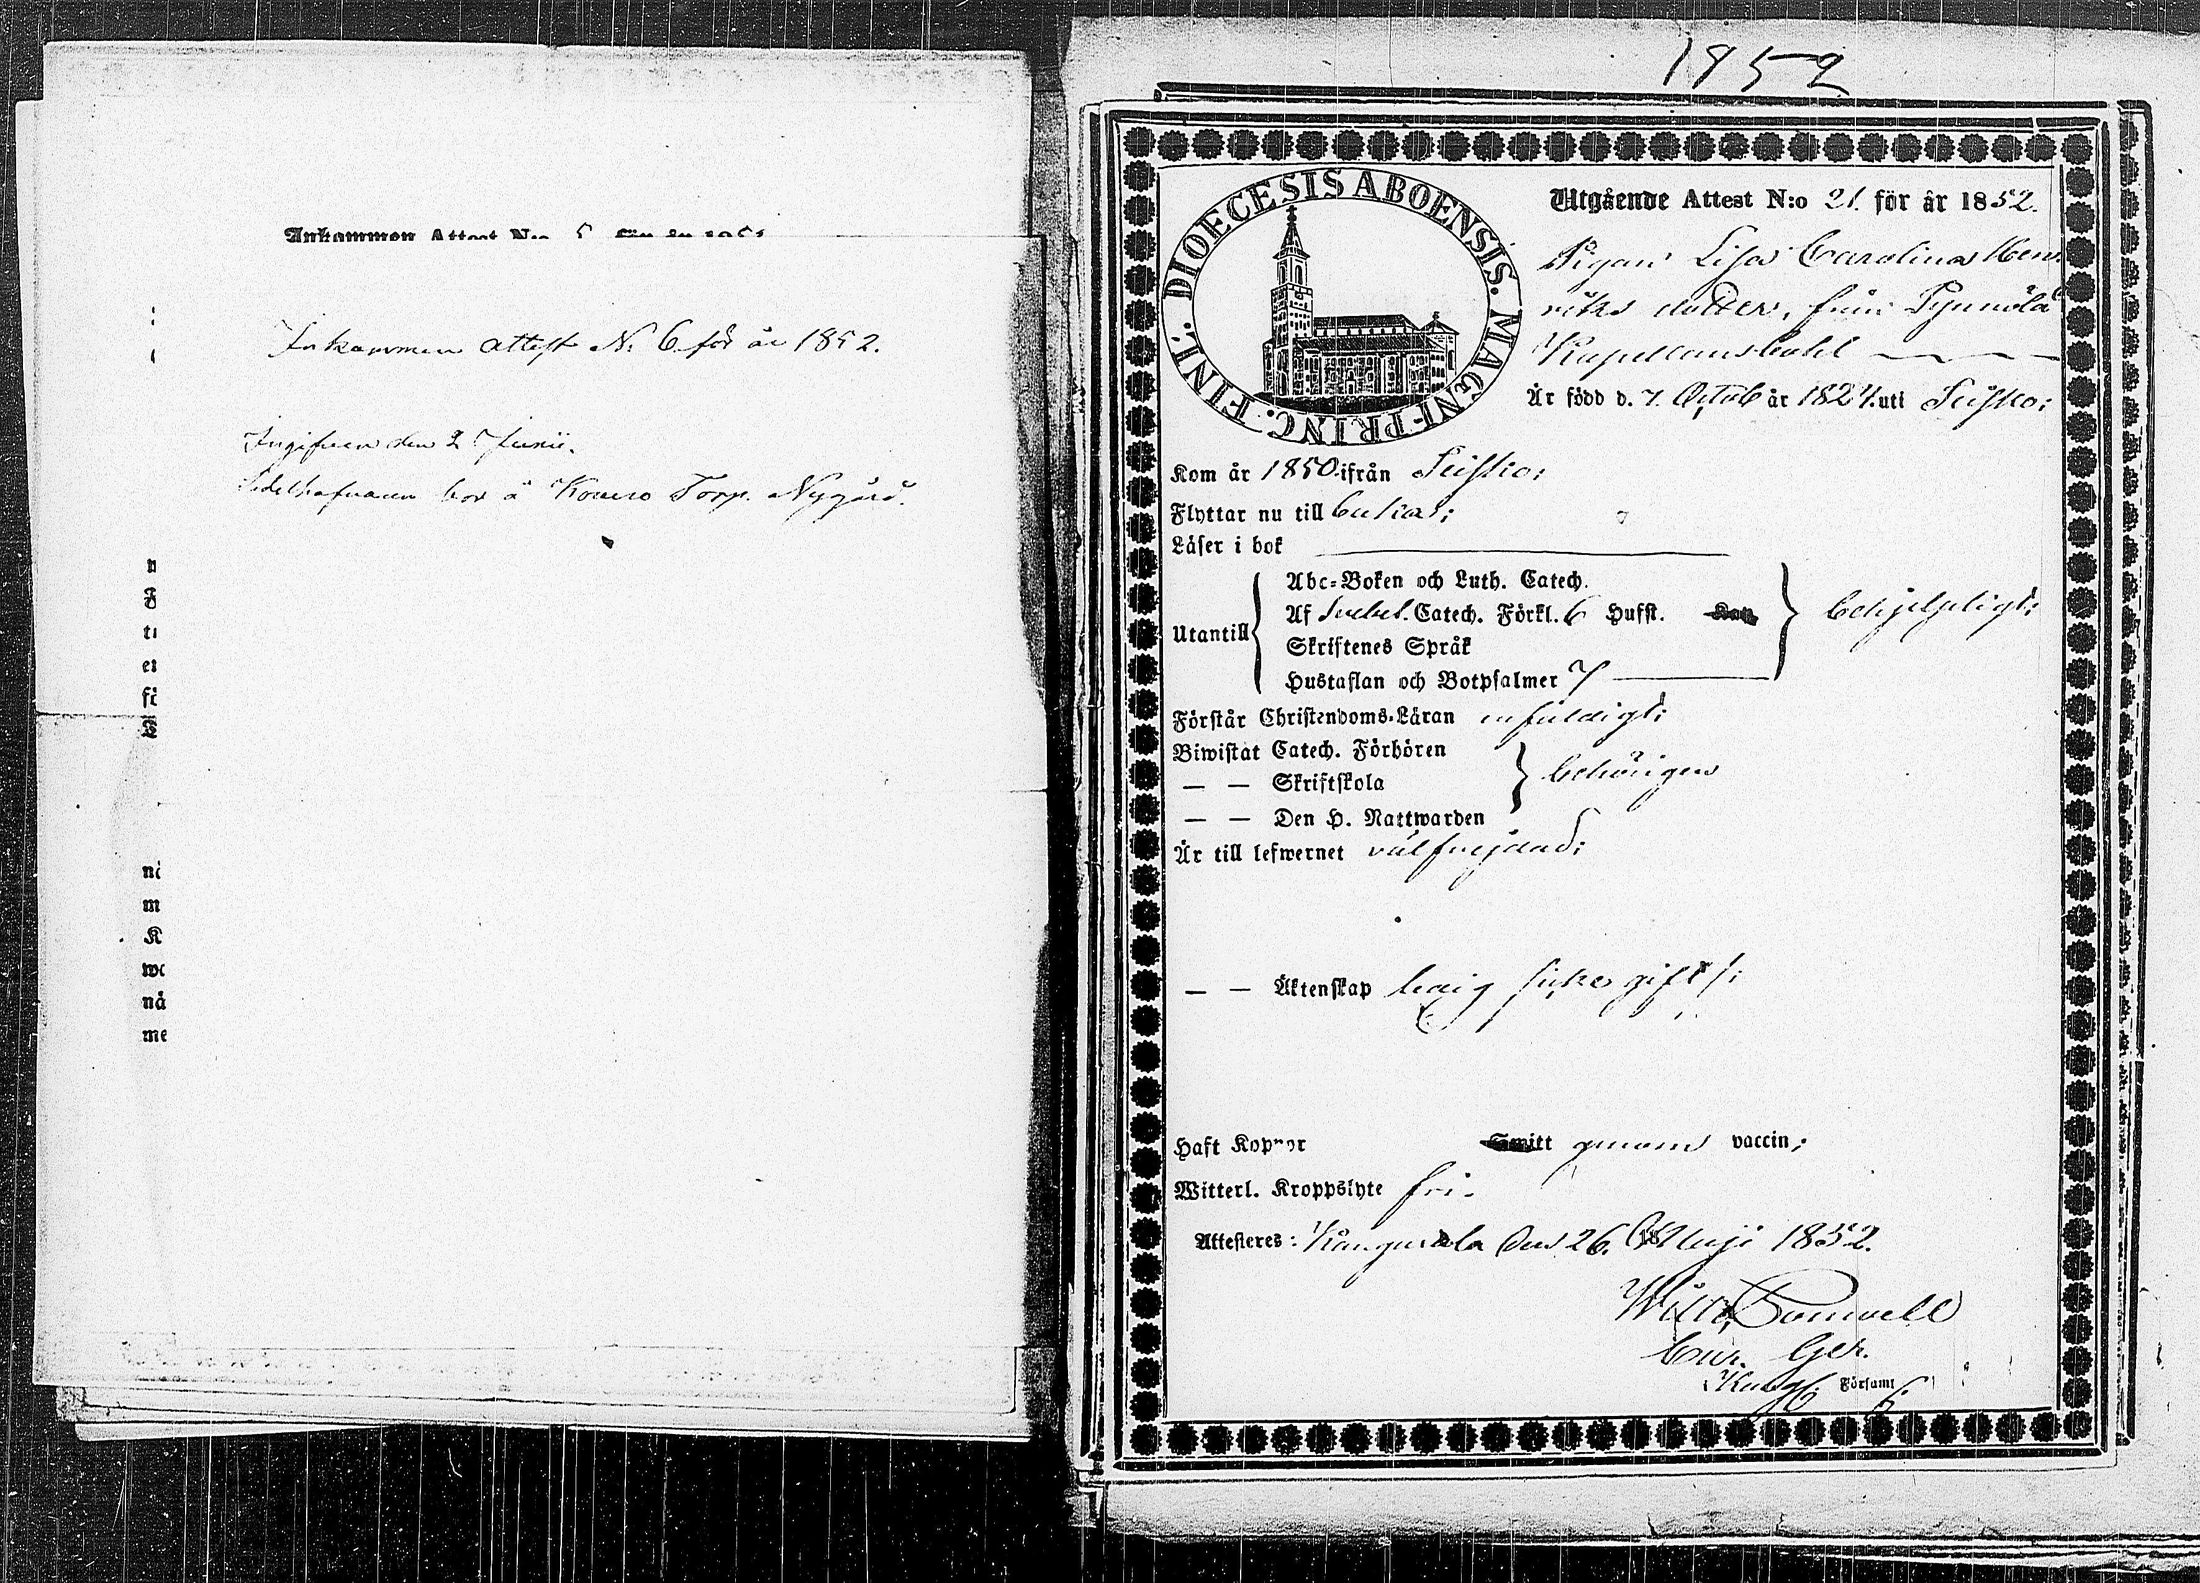 Inkommen Attest N:o 5 för år 185
Inkommen Attest N: 6 för år 1852.
Ingifven den 2 Junii.
Sedelhafvaren bor å Torp. Nygård.
n
F
ti
et
fö
T
nä
m
K
wo
nå
me
1852
DIOECESIS ABOENSIS. MAGNI-PRINC. FINL.
Utgående Attest N:o 21. för år 1852.
Pigan Lisa Carolina Hen-
riks dotter, från
Kapellansbohl
Är född d. 7. Octob år 1824. uti
Kom år 1850. ifrån
Flyttar nu till
Läser i bok
Abc-Boken och Luth. Catech.
Af Svebel. Catech. Förkl. 6 Hufst. Kap.
Utantill
behjelpligt;
Skriftenes Språk
Hustaflan och Botpsalmer 7
Förstår Christendoms-Läran enfaldigt;
Biwistat Catech. Förhören
— — Skriftskola
behörigen
— — Den H. Nattwarden
Är till lefwernet välfrejdad;
— — Äktenskap ledig
Haft Koppor Smitt genom vaccin;
Witterl. Kroppslyte fri.
Attesteras: Kangasala den 26. Maji 1852.
Wilh.
Församl